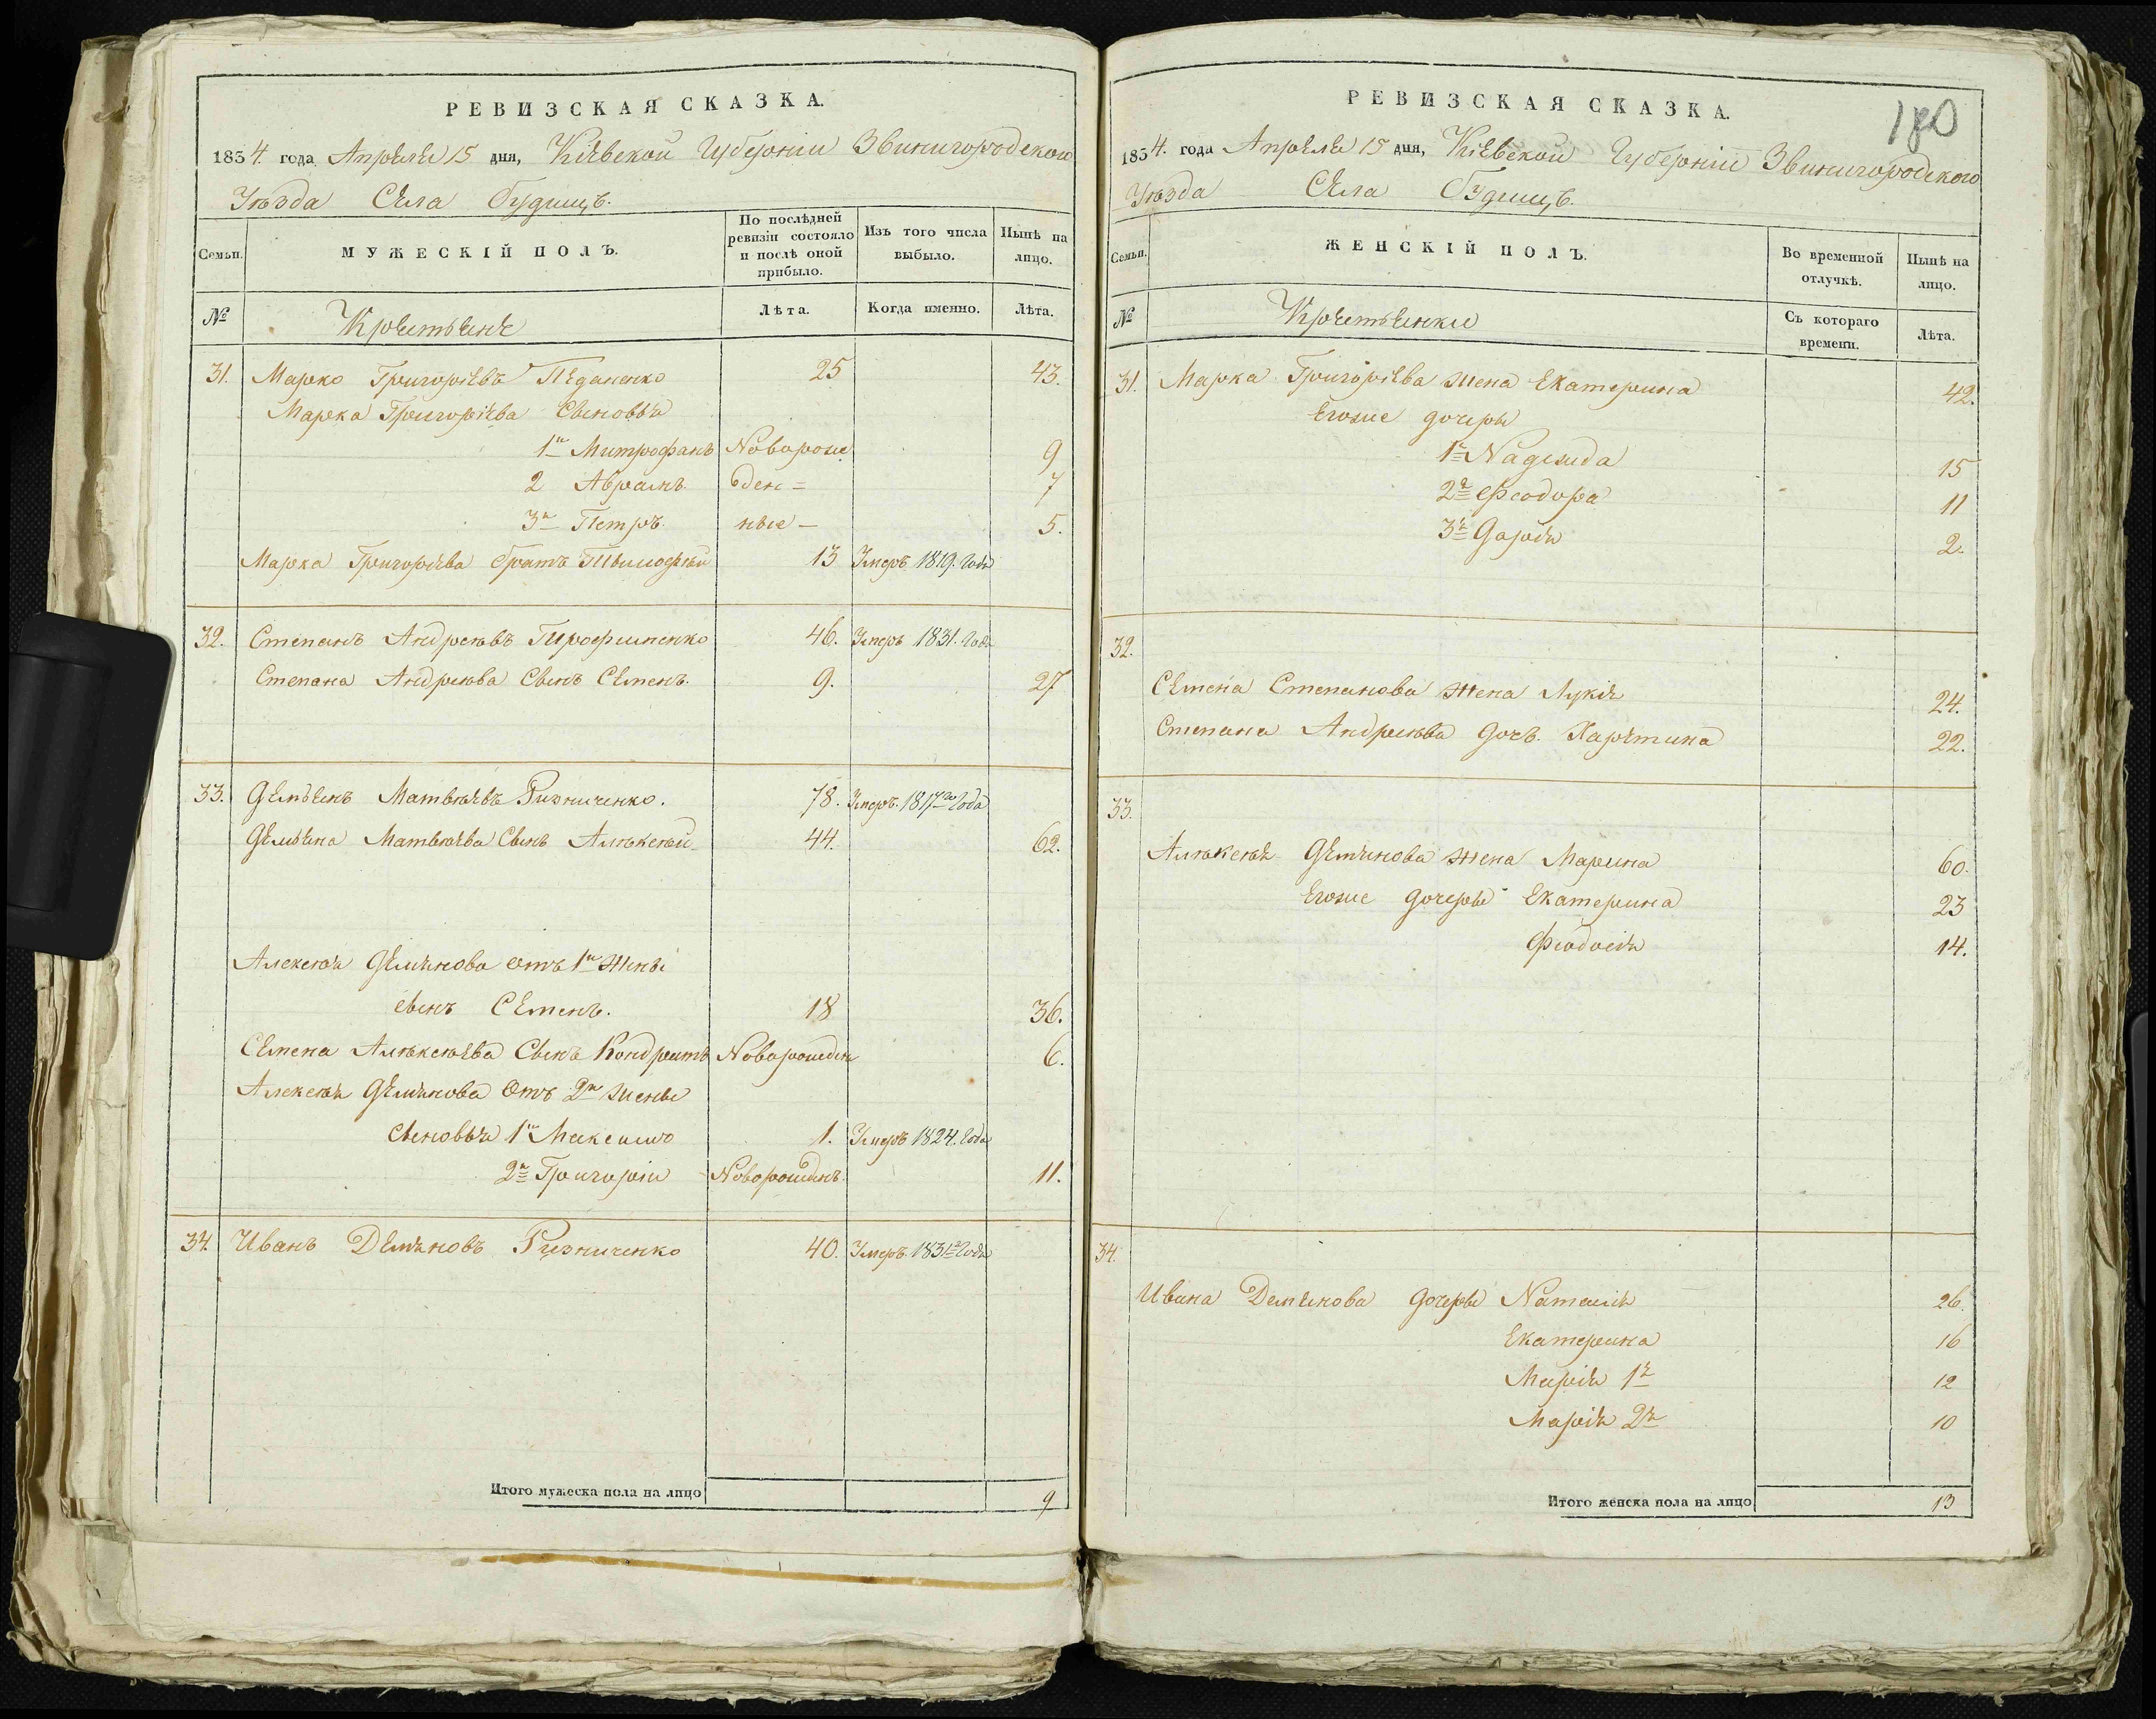 РЕВИЗСКАЯ СКАЗКА.
1834. года Апреля 15 дня, Кіевской Губерніи Звинигородского
Уѣзда Села Будищъ.
Семьи. МУЖЕСКІЙ ПОЛЪ. По послѣдней ревизіи состояло и послѣ оной прибыло. Изъ того числа выбыло. Нынѣ на лицо.
№ Крестьяне Лѣта. Когда именно. Лѣта.
31. Марко Григоріевъ 25 43.
Марка Григоріева Сыновья
1й Митрофанъ Новорож 9
2 Абрамъ ден= 7
3й Петръ. ные— 5.
Марка Григоріева братъ Тимофѣй 13 Умеръ 1819. Года
32. Степанъ Андреевъ 46. Умеръ 1831. Года
Степана Андреева Сынъ Семенъ. 9. 27
33. Демьянъ Матвѣевъ Ризниченко. 78. Умеръ. 1817го Года
Демьяна Матвѣева Сынъ Алѣксѣй 44. 62.
Алексѣя Демянова отъ 1й жены
сынъ Семенъ. 18 36.
Семена Алѣксѣева Сынъ Кондратъ Новорожден 6.
Алексѣя Демянова Отъ 2й жены
сыновья 1й Максимъ 1. Умеръ 1824. Года
2й Григорій Новорожденъ. 11.
34. Иванъ Демяновъ Ризниченко 40. Умеръ 1831го Года
Итого мужеска пола на лицо 9
180
РЕВИЗСКАЯ СКАЗКА.
1834. года Апреля 15 дня, Кіевской Губерніи Звинигородского
Уѣзда Села Будищъ.
Семьи. ЖЕНСКІЙ ПОЛЪ. Во временной отлучкѣ. Нынѣ на лицо.
№ Крестьянки Съ котораго времени. Лѣта.
31. Марка Григоріева жена Екатерина 42.
Егоже дочеры
1я Надежда 15
2я Феодора 11
3я Дарія 2.
32.
Семена Степанова жена Лукія 24.
Степана Андреева дочъ Харетина 22.
33.
Алѣксѣя Демянова жена Марина 60.
Егоже дочеры Екатерина 23
Феодосія 14.
34.
Ивана Демянова дочеры Наталія 26.
Екатерина 16
Марія 1я 12
Марія 2я 10
Итого женска пола на лицо 13